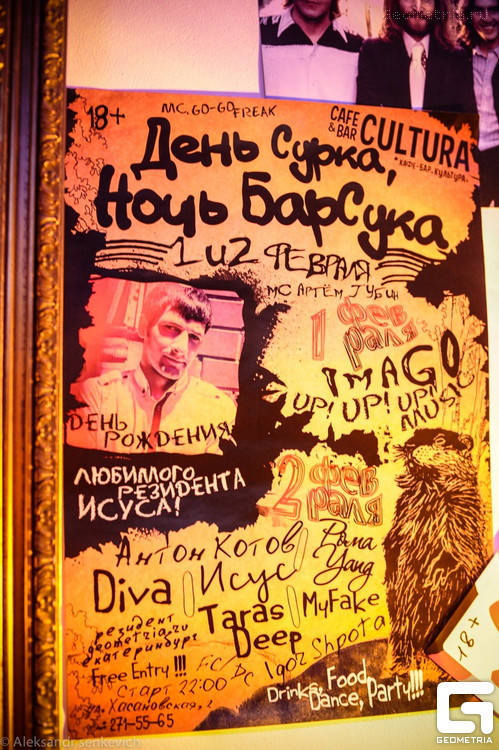 geometria.ru
18+
MC, GO-GO FREAK
CAFE
& BAR CULTURA
"КАФЕ-БАР КУЛЬТУРА"
День Сурка,
Ночь БарСука
1 и 2 ФЕВРАЛЯ
МС АРТЁМ ГУБИН
1 фев
раля
IMAGO
UP! UP! UP!
MUSIC
ДЕНЬ
РОЖДЕНИЯ
ЛЮБИМОГО
РЕЗИДЕНТА
ИСУСА!
2 фев
раля
Антон Котов
Рита
Yang
Diva | Исус
Taras | MyFake
Deep
резидент
geometria.ru
екатеринбург
Igor Shpota
Free Entry!!! FC DC
Старт 22:00
ул. Хасановская, 2
271-55-65
Drinks, Food
Dance, Party!!!
18+
© AleksandrSenkevich
GEOMETRIA